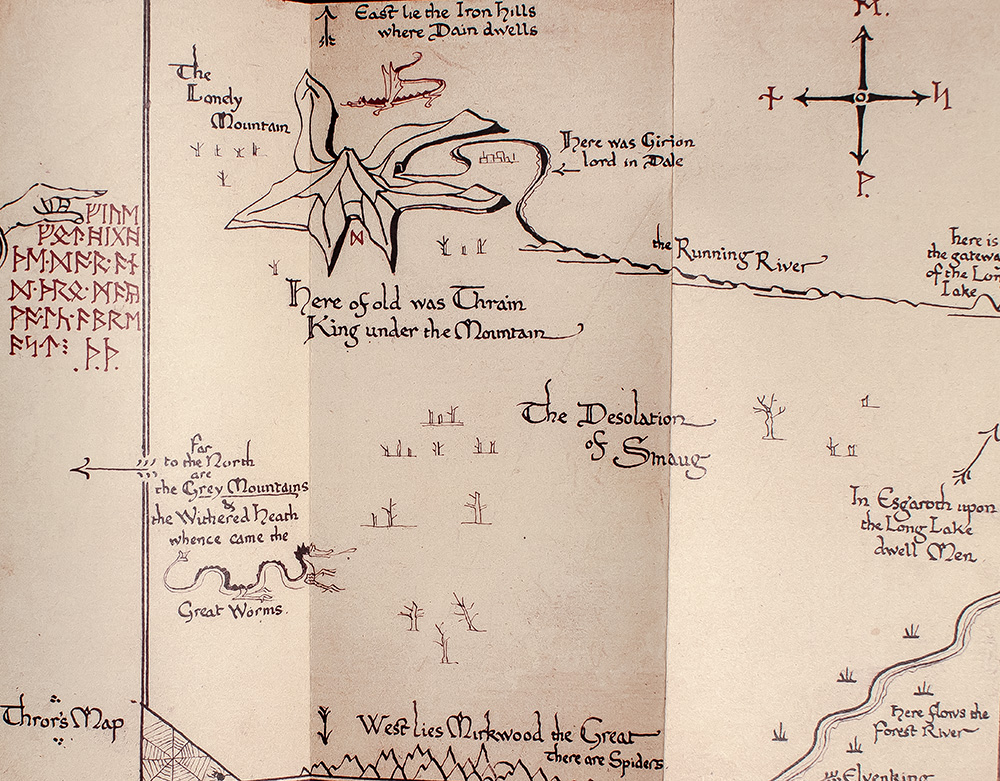 East lie the Iron Hills
where Dain dwells
The
Lonely
Mountain
ᛖ.
ᚾ
ᛋ
ᚹ.
Here was Girion
lord in Dale
ᚠᛁᚢᛖ
ᚠᚩᛏ᛫ᚻᛁᚷᚻ
ᚦᛖ᛫ᛞᚩᚱ᛫ᚪᚾ
ᛞ᛫ᚦᚱᛟ᛫ᛗᚪᚣ
ᚹᚪᛚᚳ᛫ᚪᛒᚱᛖ
ᚪᛋᛏ᛬ ᛫ᚦ᛫ᚦ᛫
ᛞ
the Running River
Here is
the gatewa
of the Lon
Lake
Here of old was Thrain
King under the Mountain
The Desolation
of Smaug
far
to the North
are
the Grey Mountains
&
the Withered Heath
whence came the
Great Worms.
In Esgaroth upon
the Long Lake
dwell Men
Here flows the
Forest River
Thror's Map
West lies Mirkwood the Great
there are Spiders.
Elvenking